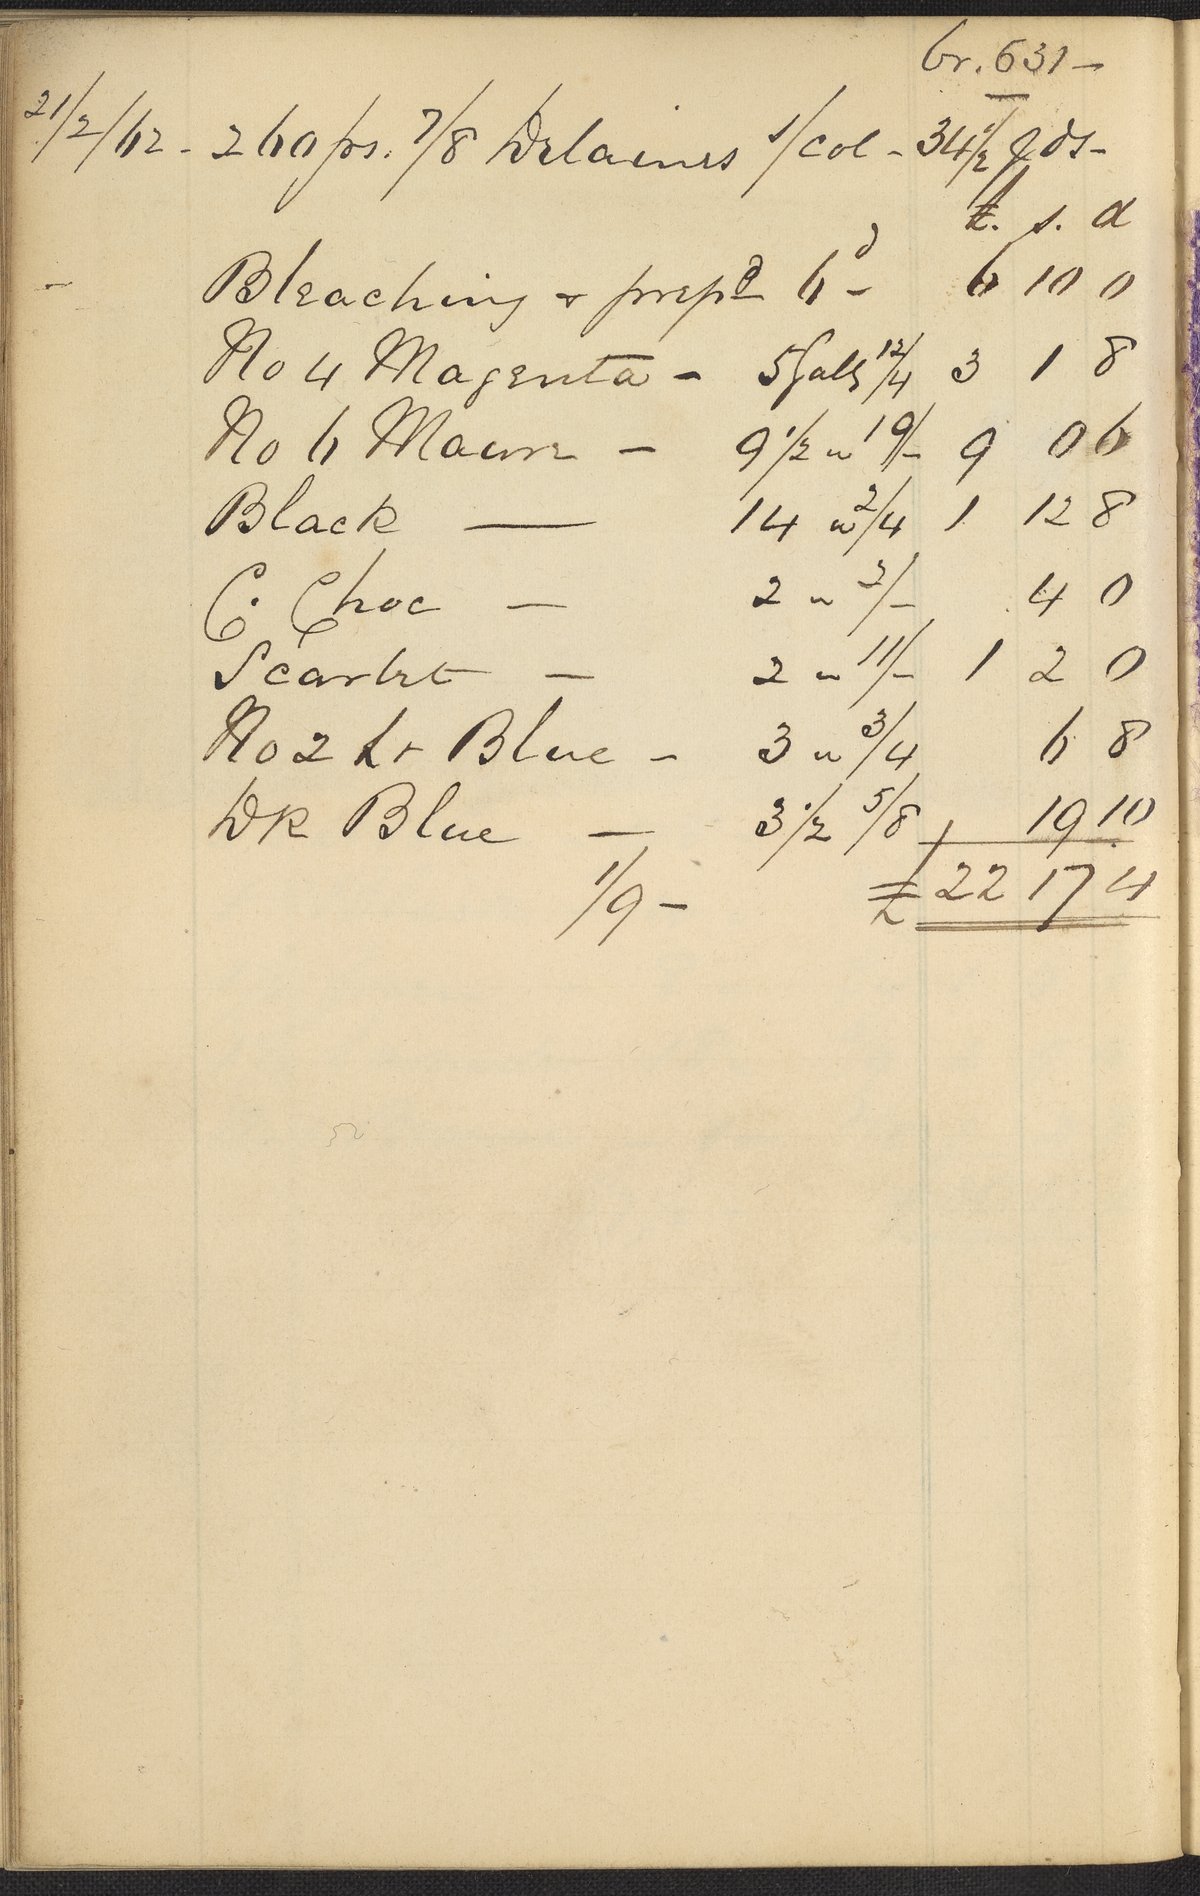 Cr. 631 –
21/2/62 - 260 ps. 7/8 Delaines s/Col - 34 1/2 Yds -
£. s. d
Bleaching & prepd 6d - 6 10 0
No 4 Magenta - 5 Galls 12/4 3 1 8
No 6 Mauve - 9 1/2 " 19/- 9 0 6
Black — 14 " 2/4 1 12 8
C. Choc – 2 " 2/- 4 0
Scarlet – 2 " 11/- 1 2 0
No 2 Lt Blue - 3 " 3/4 6 8
Dk Blue — 3 1/2 5/8 19 10
1/9 - £ 22 17 4